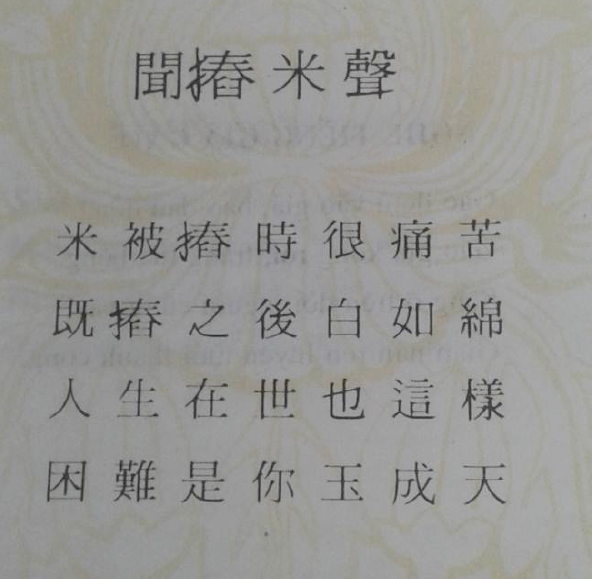 聞摏米聲
米被摏時很痛苦
既摏之後白如綿
人生在世也這樣
困難是你玉成天